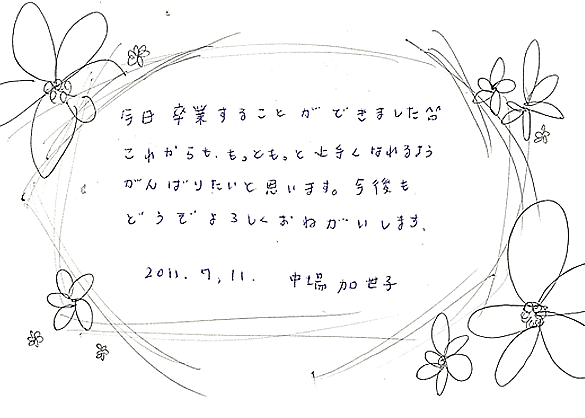 今日卒業することができました^^
これからも、もっともっと上手くなれるよう
がんばりたいと思います。今後も
どうぞよろしくおねがいします。
2011.7.11. 中場 加世子